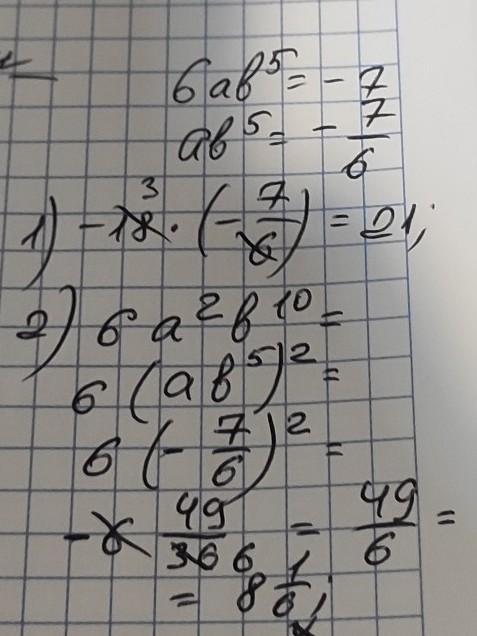 6ab⁵ = - 7
ab⁵ = - 7/6
1) -18 · (- 7/6) = 21;
3
2) 6 a² b¹⁰ =
6 (ab⁵)² =
6 (- 7/6)² =
- 6 49/36 6 = 49/6 =
= 8 1/6;